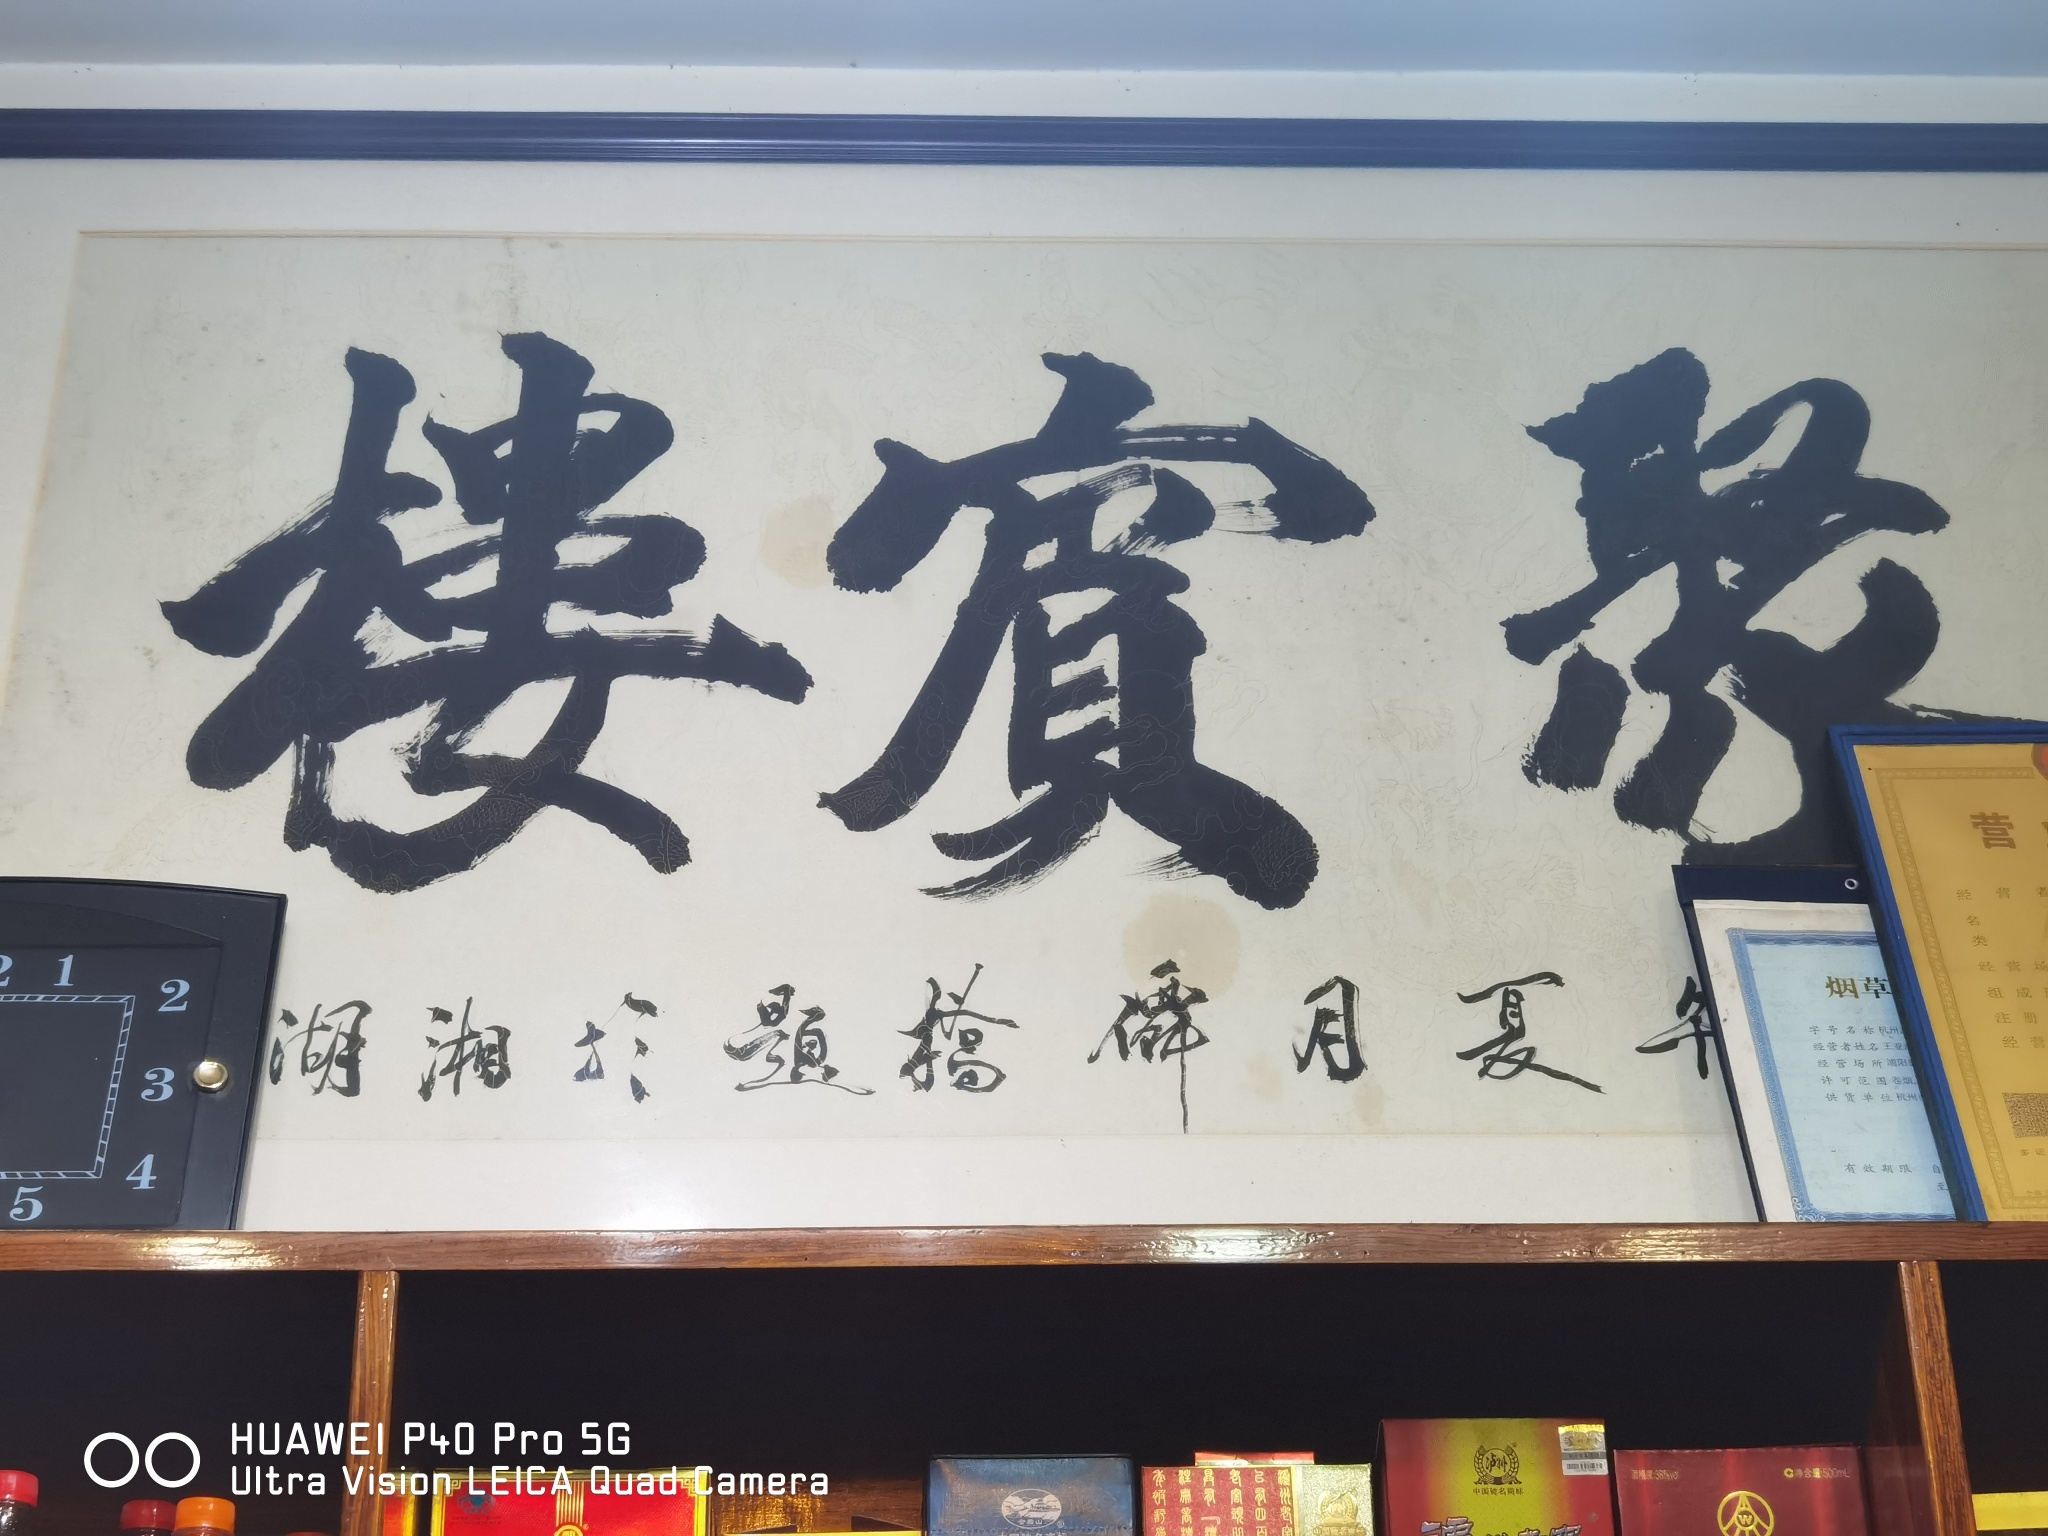 聚賓樓
年夏月舜橋題於湘湖
2 1
2
3
4
5
营
经营者
名
类
经营场
组成
注册
经营
烟草
字号名称杭州
经营者姓名王
经营场所
许可范围卷烟
供货单位杭州
有效期限 自
至
中国驰名商标
酒精度:38%vol
净含量:500mL
HUAWEI P40 Pro 5G
Ultra Vision LEICA Quad Camera